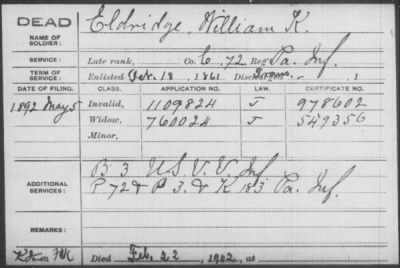 DEAD
Eldridge, William K.
NAME OF SOLDIER:
SERVICE:
Late rank, Co. C, 72 Reg Pa. Inf.
TERM OF SERVICE:
Enlisted 18, 1861 Discharged, 1
DATE OF FILING. CLASS. APPLICATION NO. LAW. CERTIFICATE NO.
1892 May 5 Invalid, 1109824 J 978602
Widow, 760024 J 549356
Minor,
ADDITIONAL SERVICES:
B 3 U.S. V. V. Inf
P 72 & P 3. & K 183 Pa. Inf.
REMARKS:
Died Feb. 22, 1902, at